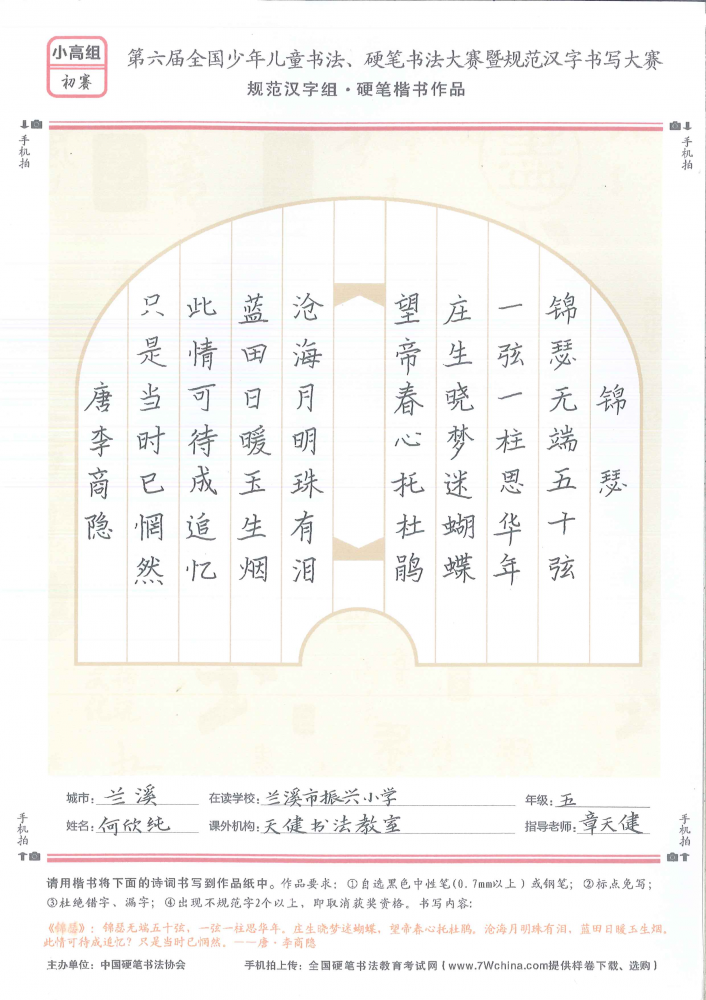 小高组
初赛
第六届全国少年儿童书法、硬笔书法大赛暨规范汉字书写大赛
规范汉字组·硬笔楷书作品
手机拍
手机拍
锦瑟
锦瑟无端五十弦
一弦一柱思华年
庄生晓梦迷蝴蝶
望帝春心托杜鹃
沧海月明珠有泪
蓝田日暖玉生烟
此情可待成追忆
只是当时已惘然
唐李商隐
城市：兰溪 在读学校：兰溪市振兴小学 年级：五
姓名：何欣纯 课外机构：天健书法教室 指导老师：章天健
手机拍
手机拍
请用楷书将下面的诗词书写到作品纸中。作品要求：①自选黑色中性笔(0.7mm以上)或钢笔；②标点免写；
③杜绝错字、漏字；④出现不规范字2个以上，即取消获奖资格。书写内容：
《锦瑟》：锦瑟无端五十弦，一弦一柱思华年。庄生晓梦迷蝴蝶，望帝春心托杜鹃。沧海月明珠有泪，蓝田日暖玉生烟。
此情可待成追忆？只是当时已惘然。——唐·李商隐
主办单位：中国硬笔书法协会 手机拍上传：全国硬笔书法教育考试网（www.7Wchina.com提供样卷下载、选购）